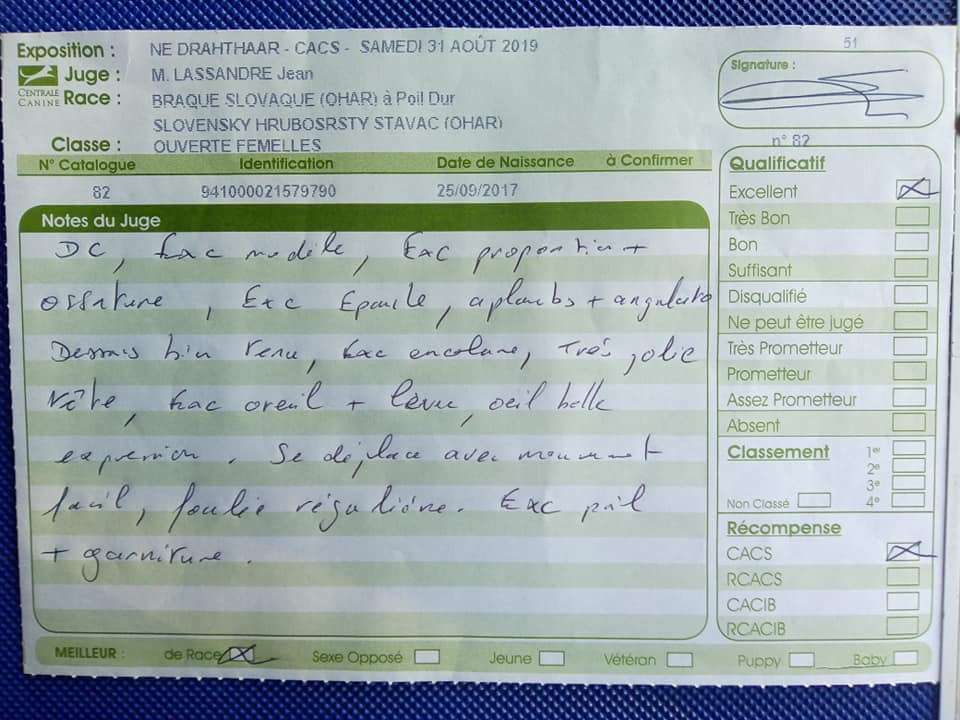 Exposition : NE DRAHTHAAR - CACS - SAMEDI 31 AOÛT 2019
Juge : M. LASSANDRE Jean
CENTRALE CANINE
Race : BRAQUE SLOVAQUE (OHAR) à Poil Dur
SLOVENSKY HRUBOSRSTY STAVAC (OHAR)
Classe : OUVERTE FEMELLES
51
Signature :
n° 82
N° Catalogue Identification Date de Naissance à Confirmer
82 941000021579790 25/09/2017
Notes du Juge
DC, Exc modèle, Exc proportion +
ossature, Exc Epaule, aplombs +
Dessus bien tenu, Exc encolure, très jolie
tête, Exc oreil + lèvre, oeil belle
expression. Se déplace avec mouvement
facil, foulée régulière. Exc poil
+ garniture.
Qualificatif
Excellent
Très Bon
Bon
Suffisant
Disqualifié
Ne peut être jugé
Très Prometteur
Prometteur
Assez Prometteur
Absent
Classement 1er
2e
3e
Non Classé 4e
Récompense
CACS
RCACS
CACIB
RCACIB
MEILLEUR : de Race Sexe Opposé Jeune Vétéran Puppy Baby